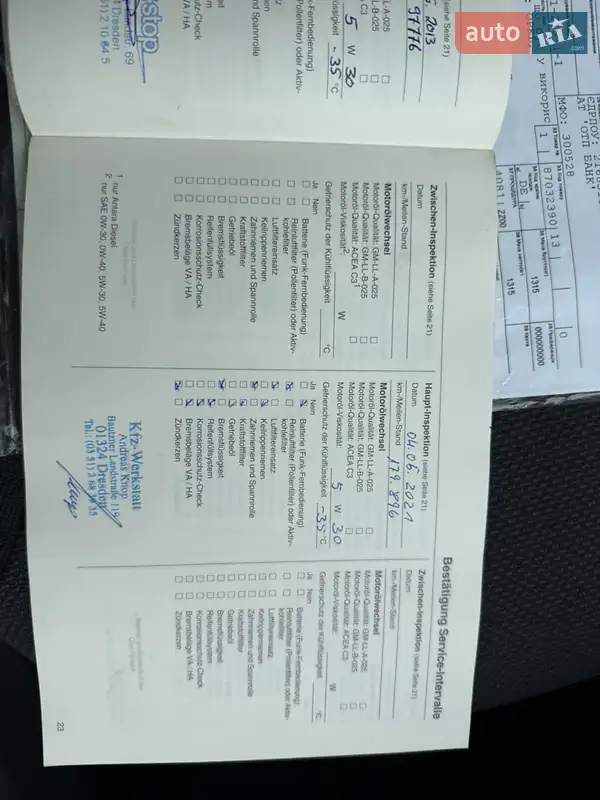 auto RIA.com
Bestätigung Service-Intervalle
Zwischen-Inspektion (siehe Seite 21)
Datum
km-/Meilen-Stand
Motorölwechsel
Motoröl-Qualität: GM-LL-A-025
Motoröl-Qualität: GM-LL-B-025
Motoröl-Qualität: ACEA C3¹
Motoröl-Viskosität²: W
Gefrierschutz der Kühlflüssigkeit °C
Ja Nein
Batterie (Funk-Fernbedienung)
Reinluftfilter (Pollenfilter) oder Aktiv-
kohlefilter
Luftfiltereinsatz
Keilrippenriemen
Zahnriemen und Spannrolle
Kraftstofffilter
Getriebeöl
Bremsflüssigkeit
Reifenfüllsystem
Korrosionsschutz-Check
Bremsbeläge VA / HA
Zündkerzen
1 nur Antara Diesel
2 nur SAE 0W-30, 0W-40, 5W-30, 5W-40
Haupt-Inspektion (siehe Seite 21)
Datum 04.06.2021
km-/Meilen-Stand 179.896
Motorölwechsel
Motoröl-Qualität: GM-LL-A-025
Motoröl-Qualität: GM-LL-B-025
Motoröl-Qualität: ACEA C3
Motoröl-Viskosität: 5 W 30
Gefrierschutz der Kühlflüssigkeit -35 °C
Ja Nein
Batterie (Funk-Fernbedienung)
Reinluftfilter (Pollenfilter) oder Aktiv-
kohlefilter
Luftfiltereinsatz
Keilrippenriemen
Zahnriemen und Spannrolle
Kraftstofffilter
Getriebeöl
Bremsflüssigkeit
Reifenfüllsystem
Korrosionsschutz-Check
Bremsbeläge VA / HA
Zündkerzen
Kfz-Werkstatt
Andreas Knop
Bautzner Landstraße 119
01324 Dresden
Zwischen-Inspektion (siehe Seite 21)
Datum
km-/Meilen-Stand
Motorölwechsel
Motoröl-Qualität: GM-LL-A-025
Motoröl-Qualität: GM-LL-B-025
Motoröl-Qualität: ACEA C3
Motoröl-Viskosität: W
Gefrierschutz der Kühlflüssigkeit °C
Ja Nein
Batterie (Funk-Fernbedienung)
Reinluftfilter (Pollenfilter) oder Aktiv-
kohlefilter
Luftfiltereinsatz
Keilrippenriemen
Zahnriemen und Spannrolle
Kraftstofffilter
Getriebeöl
Bremsflüssigkeit
Reifenfüllsystem
Korrosionsschutz-Check
Bremsbeläge VA / HA
Zündkerzen
23
2013
97776
5 W 30
-35 °C
Fernbedienung)
(Pollenfilter) oder Aktiv-
und Spannrolle
VA / HA
Dresden
МФО: 300528
АТ "ОТП БАНК"
8703239013
1315
1315
000000000
DE
2200